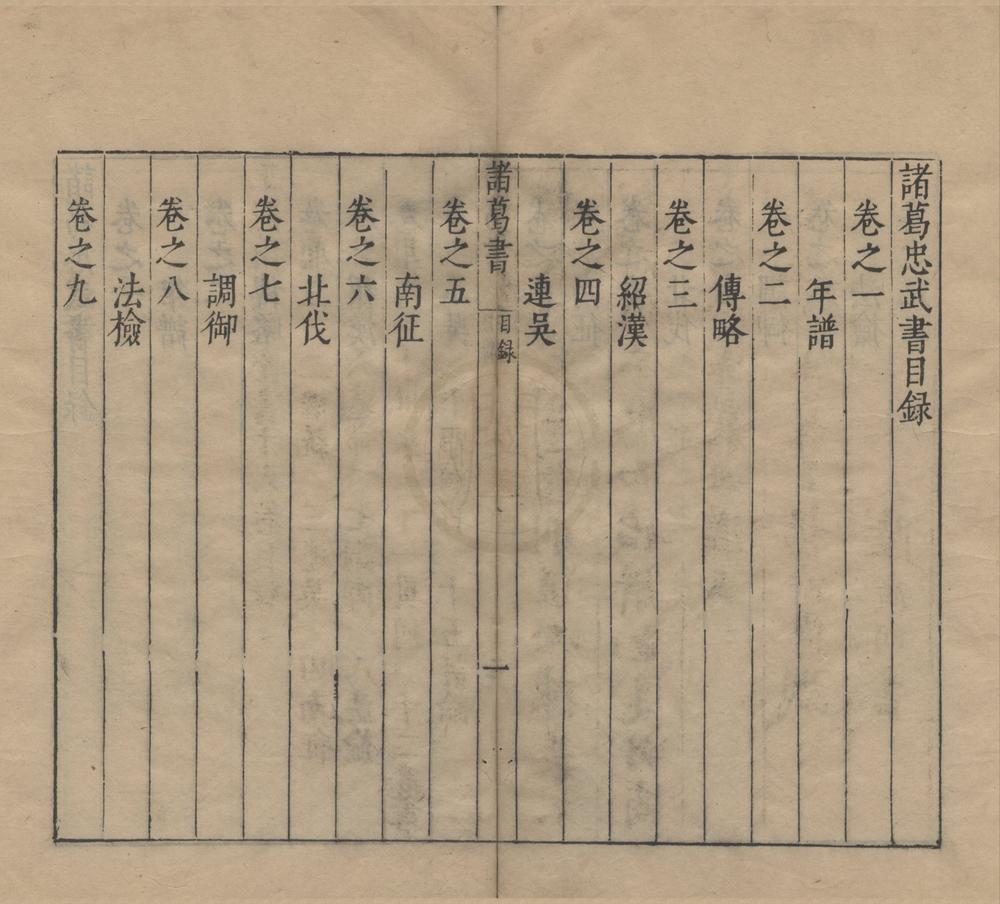 諸葛忠武書目録
卷之一
年譜
卷之二
傳略
卷之三
紹漢
卷之四
連吳
諸葛書
目録
一
卷之五
南征
卷之六
北伐
卷之七
調御
卷之八
法檢
卷之九